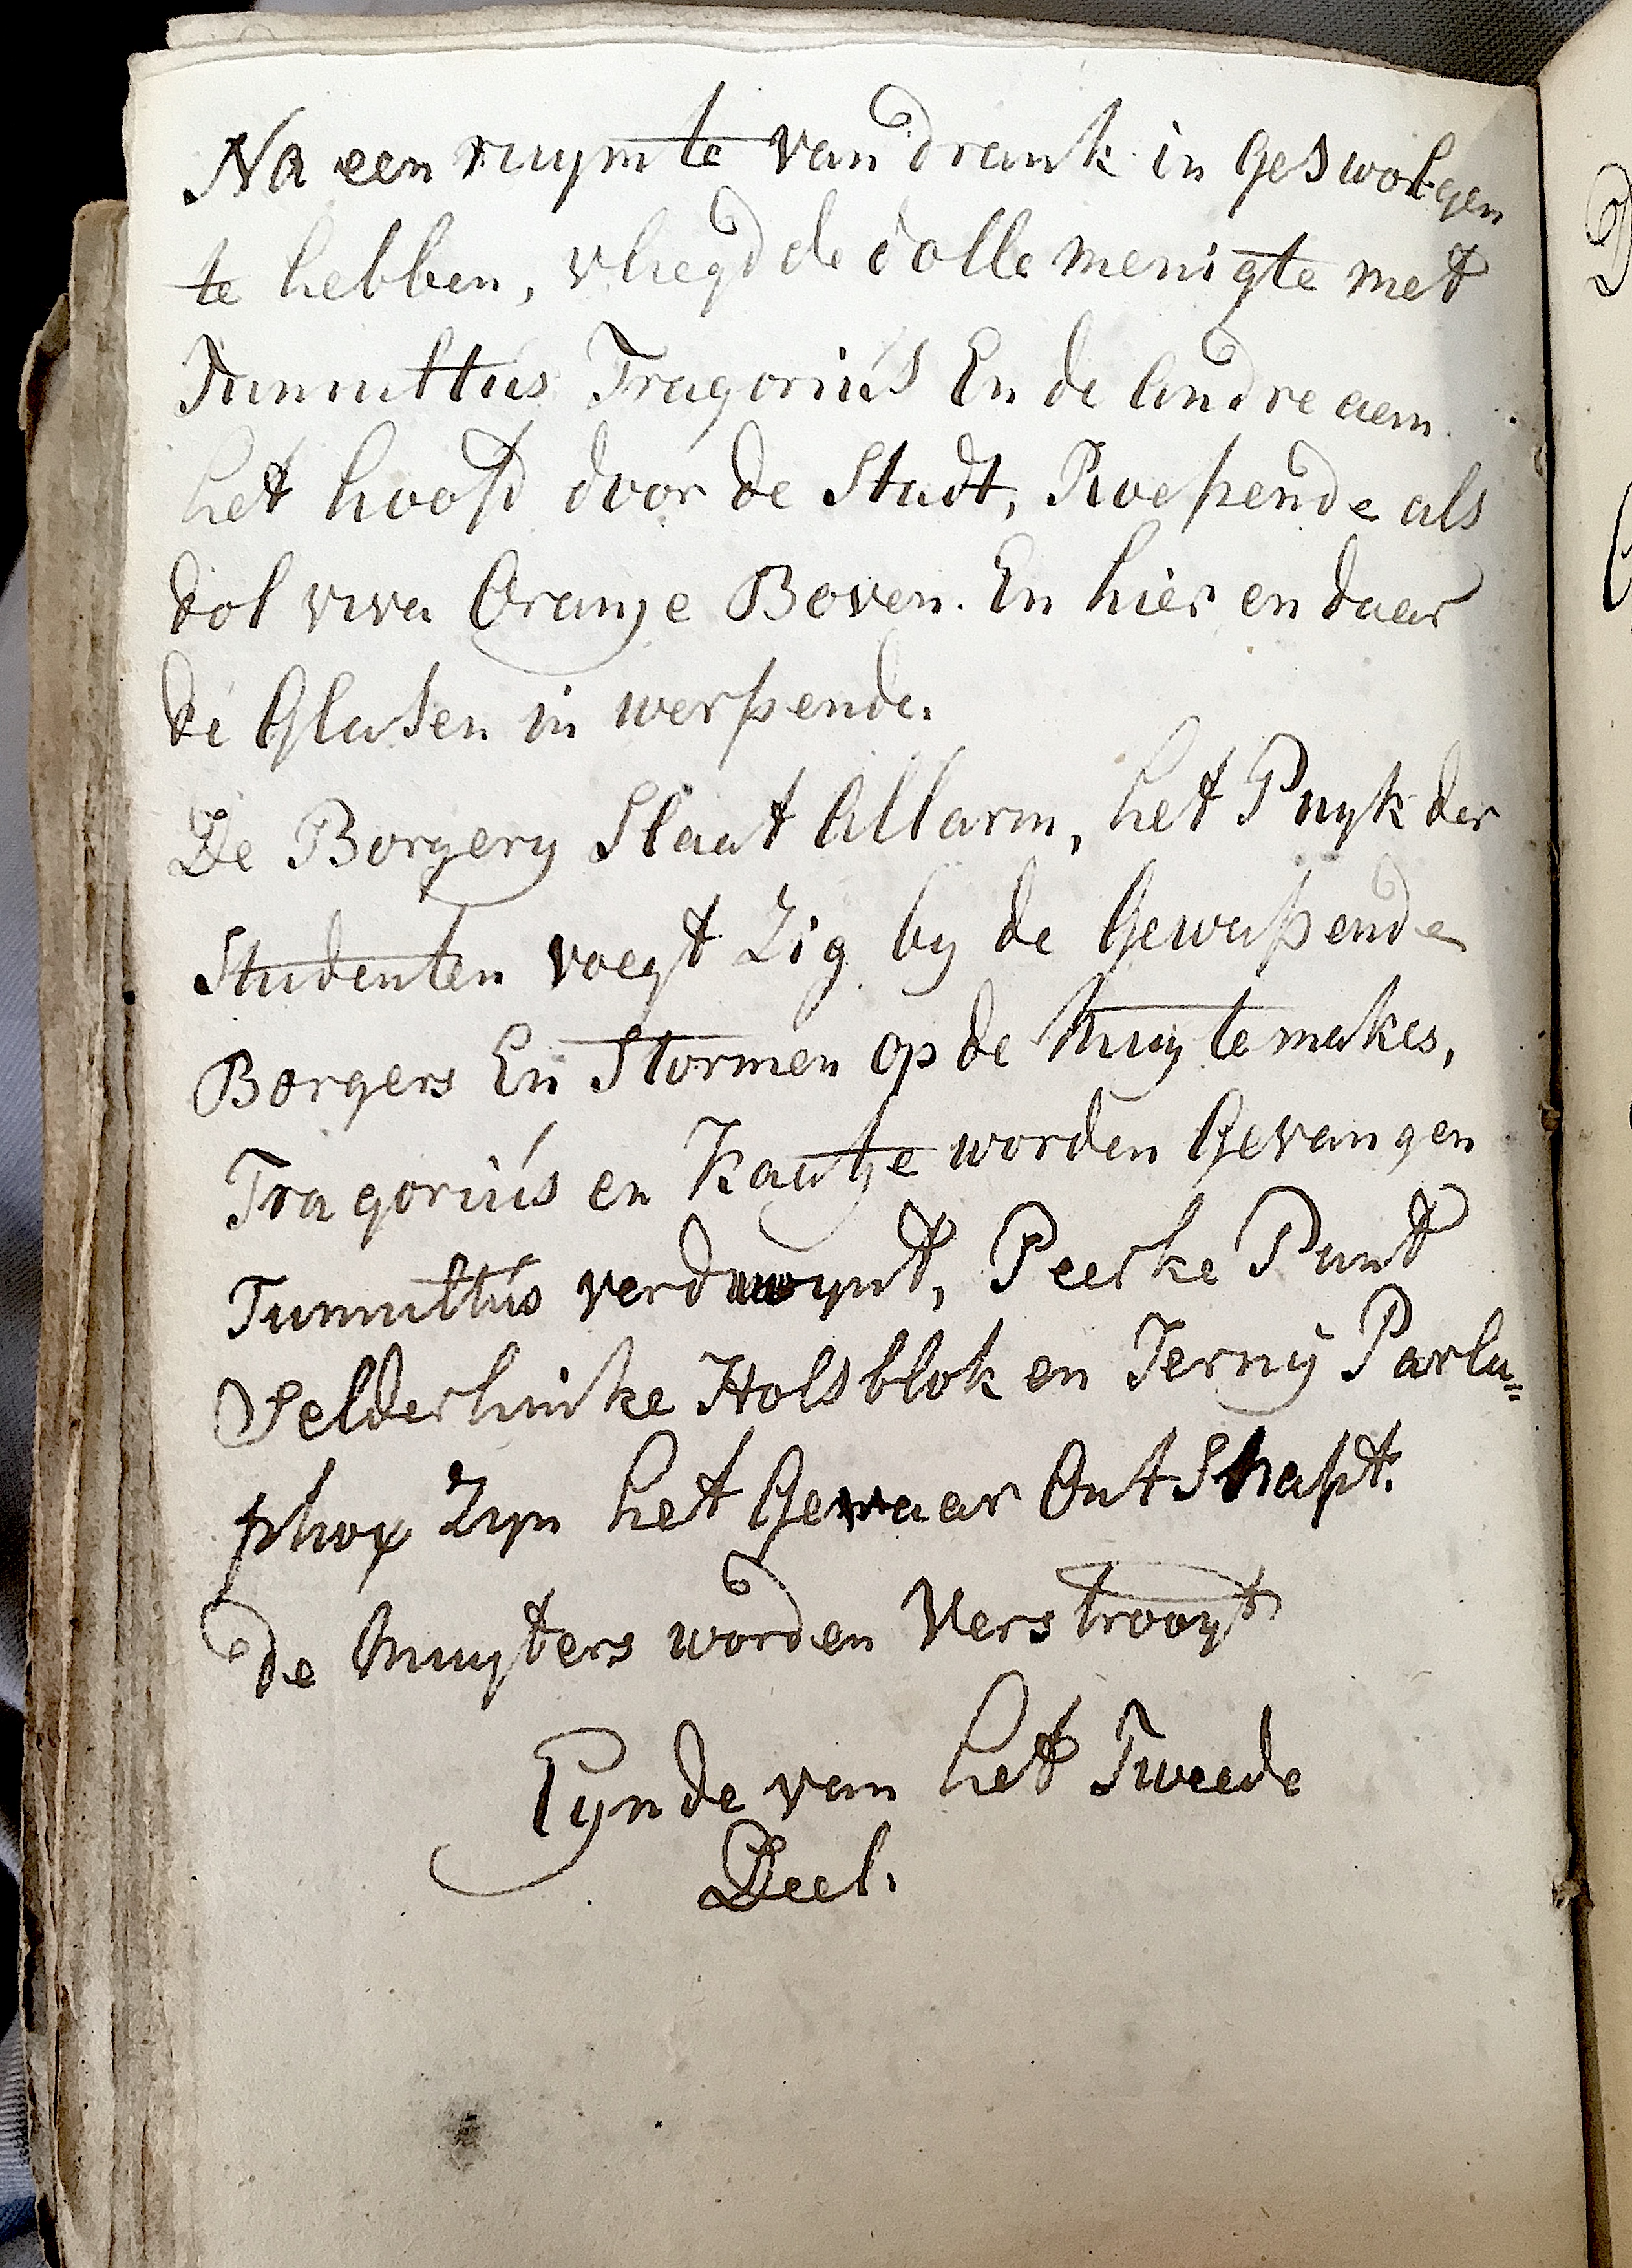 Na een ruymte van drank in geswolgen
te hebben, vliegd de dolle menigte met
Tumultus Tragorius En de andre aen
het hoofd door de Stadt, Roepende als
dol viva Oranje Boven. En hier en daar
de Glasen in werpende.
De Borgery Slaat Allarm, het Puyk der
Studenten voegt Zig by de Gewapende
Borgers En Stormen op de Muytemakes,
Tragorius en Kaatje worden Gevangen
Tumultus verdwynt, Peerke Punt
Selderlinike Holsblok en Jerny Parlu=
phox Zyn het Gevaar OntSnapt.
de Muyters worden Verstrooyt
Eynde van het Tweede
Deel.